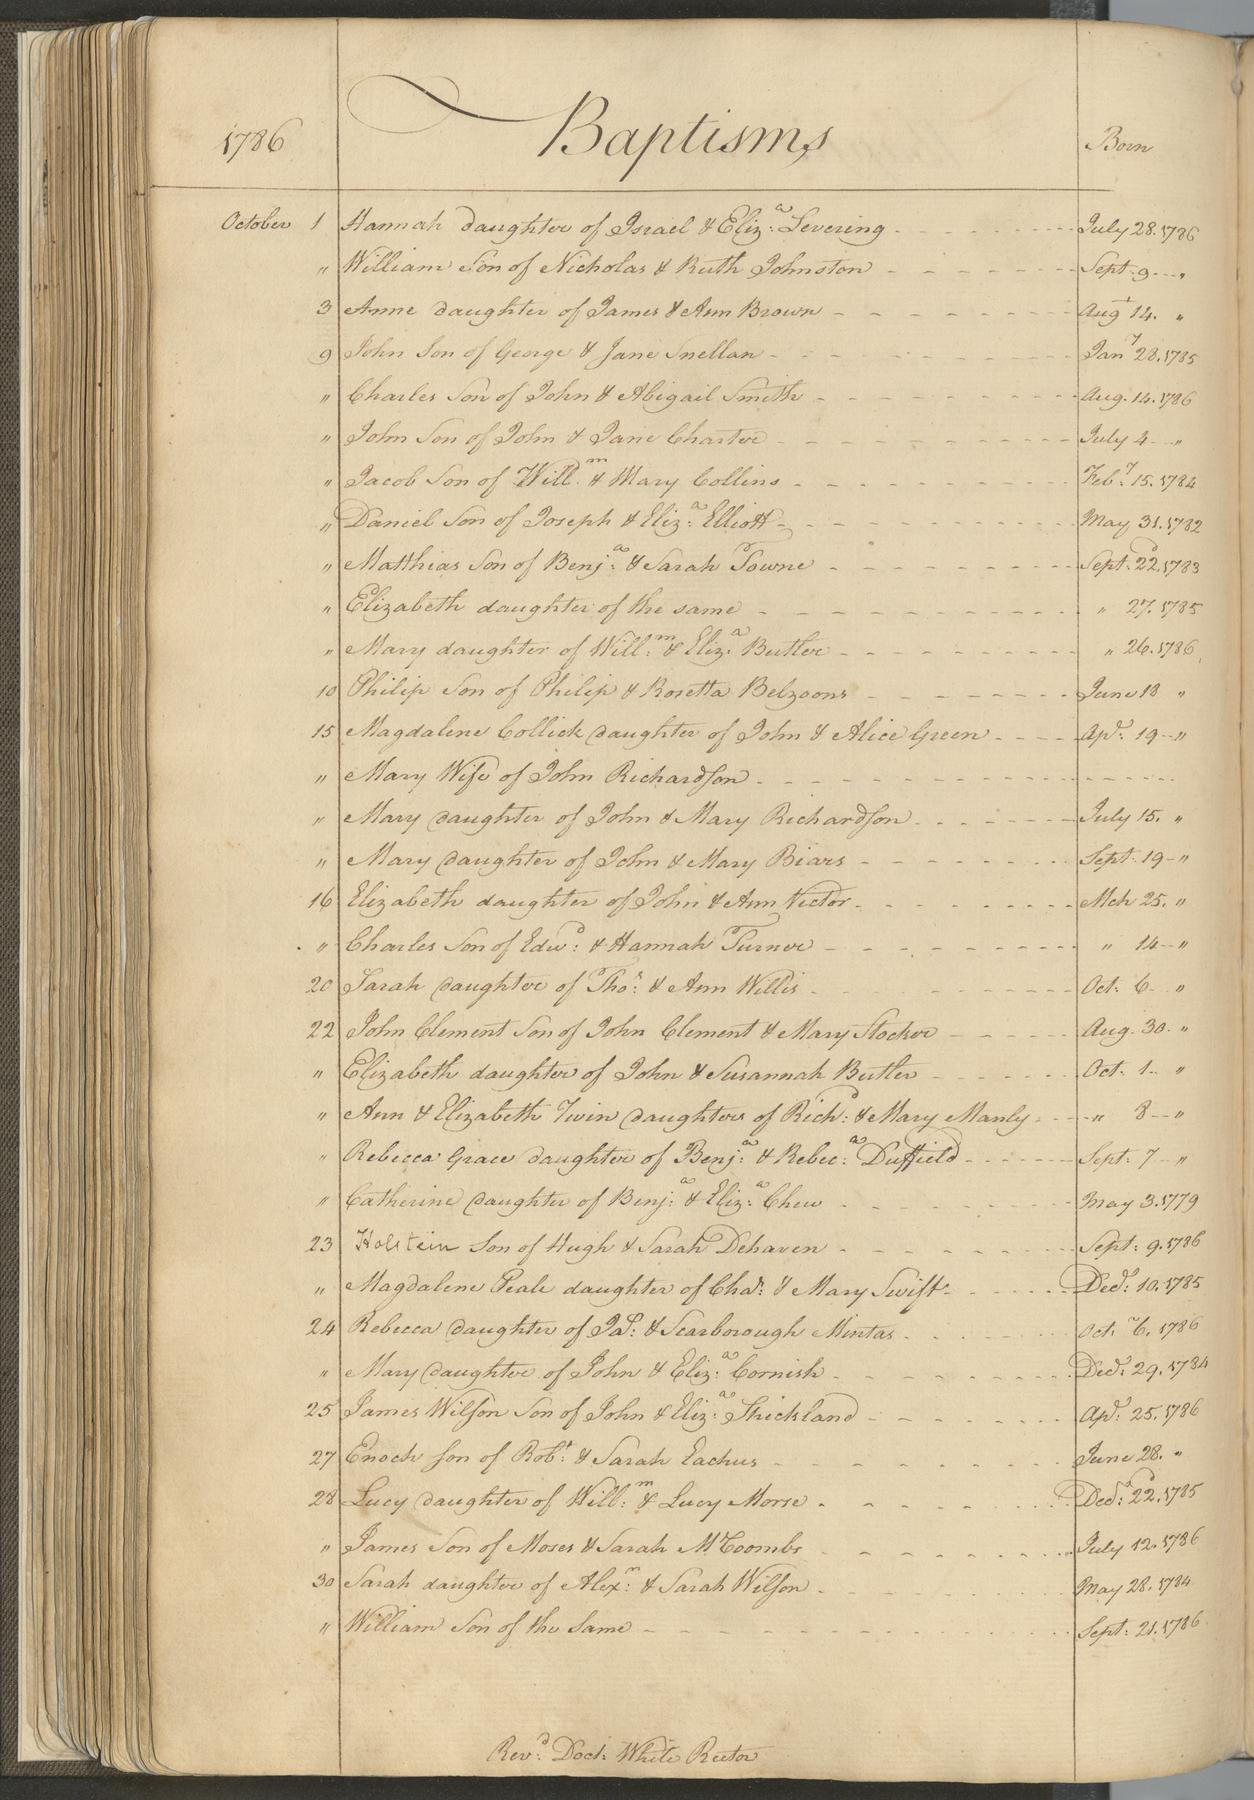 1786 Baptisms Born
October 1 Hannah daughter of Israel & Eliz:a Levering July 28. 1786
" William Son of Nicholas & Ruth Johnston Sept. 9 "
3 Anne daughter of James & Ann Brown Augt 14. "
9 John Son of George & Jane Snellan Jany 28. 1785
" Charles Son of John & Abigail Smith Aug. 14. 1786
" John Son of John & Jane Charter July 4 "
" Jacob Son of Will.m & Mary Collins Feb:y 15. 1784
" Daniel Son of Joseph & Eliz:a Elliott May 31. 1782
" Matthias Son of Benj:a & Sarah Towne Sept: 22d. 1783
" Elizabeth daughter of the same " 27. 1785
" Mary daughter of Will:m & Eliz:a Butler " 26. 1786
10 Philip Son of Philip & Rosetta Belzoons June 18 "
15 Magdalene Collick daughter of John & Alice Green Apr: 19 "
" Mary Wife of John Richardson
" Mary daughter of John & Mary Richardson July 15. "
" Mary daughter of John & Mary Biars Sept. 19 "
16 Elizabeth daughter of John & Ann Victor Mch 25. "
" Charles Son of Edw:d & Hannah Turner " 14 "
20 Sarah daughter of Tho:s & Ann Willis Oct: 6 "
22 John Clement Son of John Clement & Mary Stocker Aug. 30. "
" Elizabeth daughter of John & Susannah Butler Oct. 1. "
" Ann & Elizabeth Twin daughters of Rich:d & Mary Manly " 8 "
" Rebecca Grace daughter of Benj:a & Rebec:a Duffield Sept: 7 "
" Catherine daughter of Benj:a & Eliz:a Chew May 3. 1779
23 Holstein Son of Hugh & Sarah Dehaven Sept: 9. 1786
" Magdalene Peale daughter of Cha:s & Mary Swift Dec:r 10. 1785
24 Rebecca daughter of Ja:s & Scarborough Mintas Oct. 6. 1786
" Mary daughter of John & Eliz:a Cornish Dec:r 29. 1784
25 James Wilson Son of John & Eliz:a Strickland Apr: 25. 1786
27 Enoch Son of Rob:t & Sarah Eachus June 28. "
28 Lucy daughter of Will:m & Lucy Morse Dec:r 22d. 1785
" James Son of Moses & Sarah McCoombs July 12. 1786
30 Sarah daughter of Alex:r & Sarah Wilson May 28. 1784
" William Son of the Same Sept: 21. 1786
Rev:d Doct: White Rector